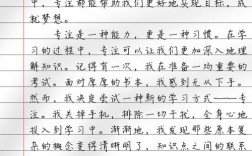 中，专注都能帮助我们更好地实现目标，成
就梦想。
专注是一种能力，更是一种习惯。在学
习的过程中，专注可以让我们更加深入地理
解知识。记得有一次，我在准备一场重要的
考试。面对厚厚的书本，我感到无从下手。
然而，我决定尝试一种新的学习方式——专
注。我关掉手机，排除一切干扰，全身心地
投入到学习中。渐渐地，我发现那些原本复
杂的概念变得清晰明了，知识点之间的联系